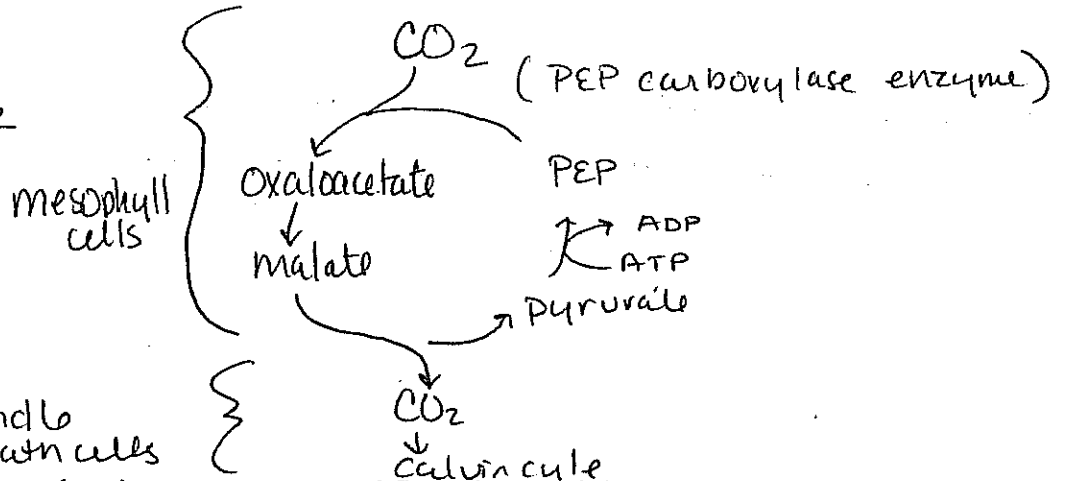 CO2
(PEP carboxylase enzyme)
mesophyll
cells
Oxaloacetate
PEP
ADP
ATP
malate
pyruvate
CO2
cells
calvin cycle